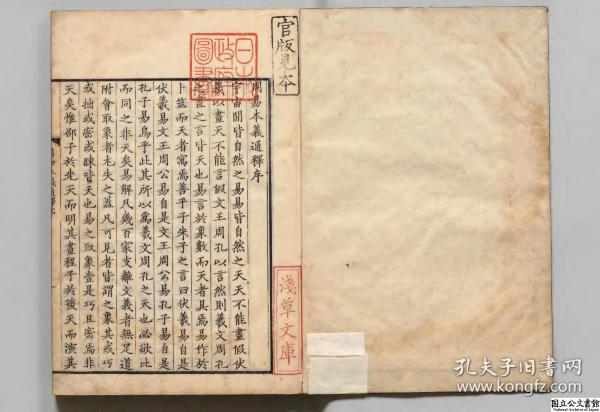 官版見本
日本政府圖書
周易本義通釋序
宇宙間皆自然之易易皆自然之天天不能畫假伏
羲以畫天不能言假文王周孔以言然則羲文周孔
之畫之言皆天也易言於象數而天者具焉易作於
卜筮而天者寓焉善乎子朱子之言曰伏羲易自是
伏羲易文王周公易自是文王周公易孔子易自是
孔子易烏乎此其所以為羲文周孔之天也必欲比
而同之非天矣易解凡幾百家支離文義者無足道
附會取象者尤失之蓋凡可見者皆謂之象其或巧
或拙或密或疎皆天也易之取象壹是巧且密焉非
天矣惟邵子於先天而明其畫程子於後天而演其
淺草文庫
孔夫子旧書网
www.kongfz.com
国立公文書館
National Archives of Japan